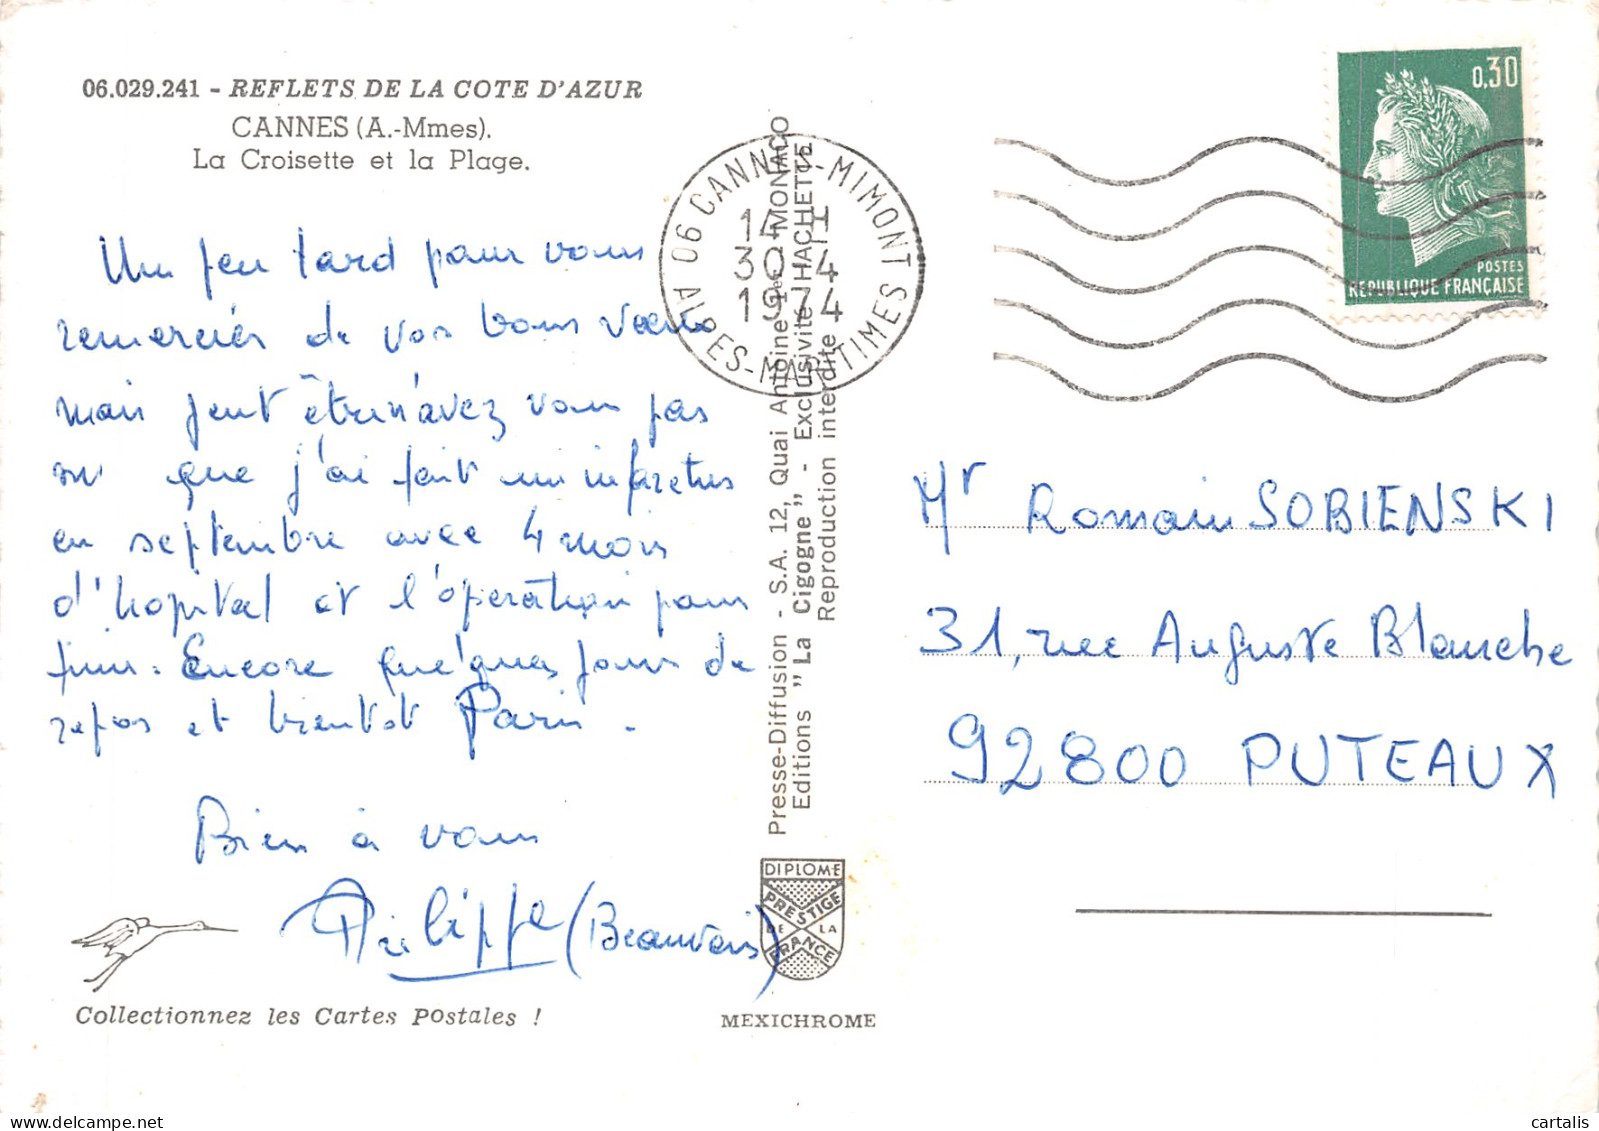 06.029.241 - REFLETS DE LA COTE D'AZUR
CANNES (A.-Mmes).
La Croisette et la Plage.
Un peu tard pour vous
remercier de vos bons vœux
mais peut être n'avez vous pas
su que j'ai fait un infarctus
en septembre avec 4 mois
d'hopital et l'opération pour
finir. Encore quelques jours de
repos et bientot Paris.
Bien à vous
Philippe (Beauvais)
Collectionnez les Cartes Postales !
Presse-Diffusion - S.A. 12, Quai Antoine 1er MONACO
Editions "La Cigogne" - Exclusivité HACHETTE
Reproduction interdite
DIPLOME
PRESTIGE
DE LA
FRANCE
MEXICHROME
06 CANNES-MIMONT
14H
30-4
1974
ALPES-MARITIMES
0,30
POSTES
REPUBLIQUE FRANÇAISE
Mr Romain SOBIENSKI
31, rue Auguste Blanche
92800 PUTEAUX
cartalis